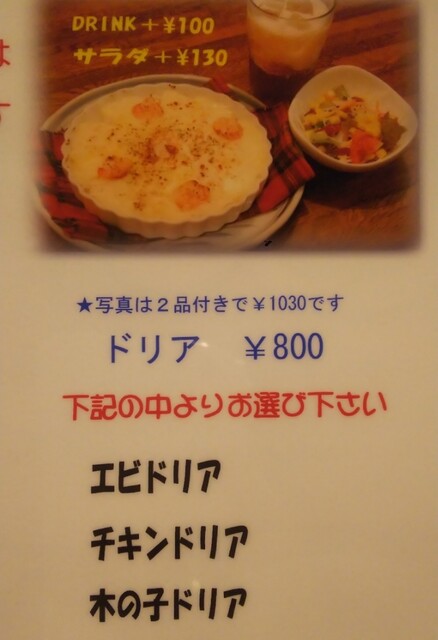 DRINK+¥100
サラダ+¥130
は
す
★写真は2品付きで¥1030です
ドリア ¥800
下記の中よりお選び下さい
エビドリア
チキンドリア
木の子ドリア